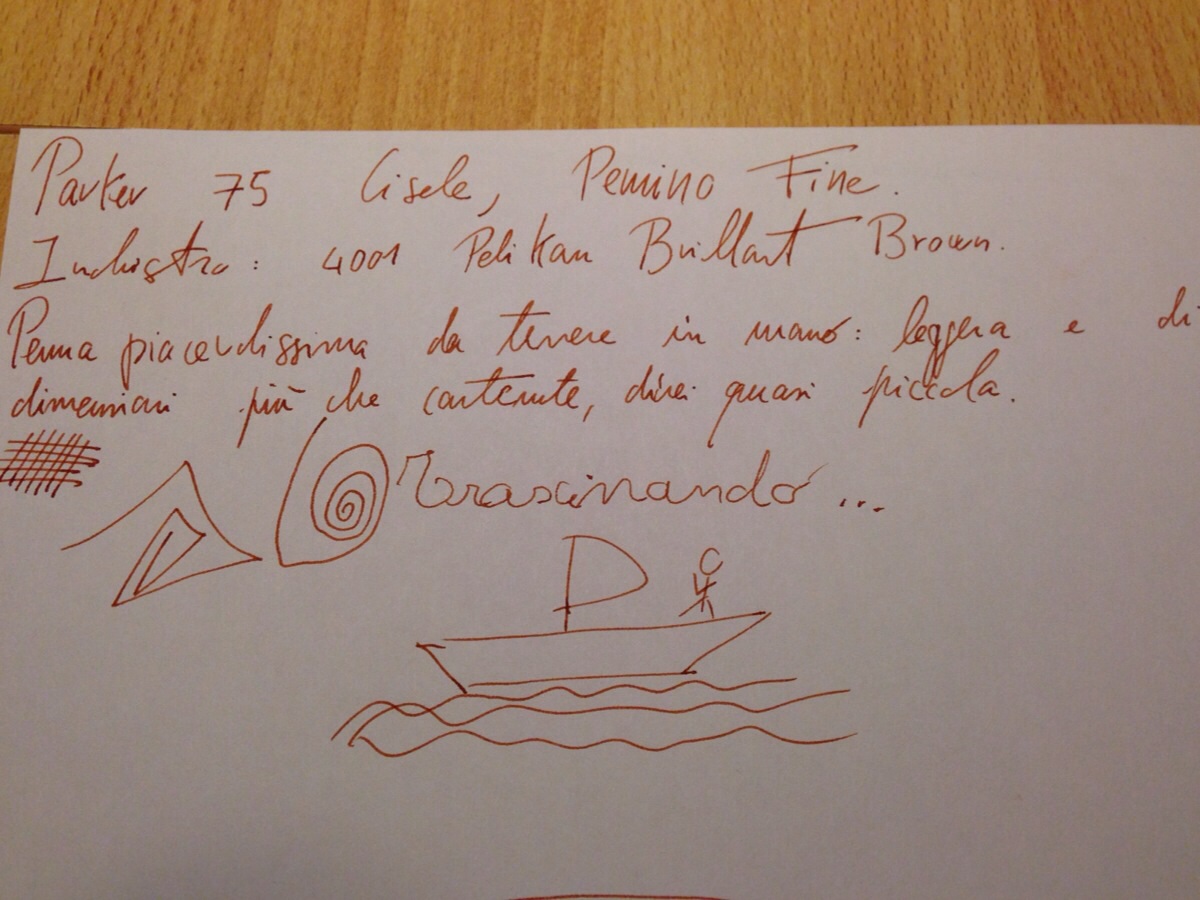 Parker 75 Cisele, Pennino Fine.
Inchiostro: 4001 Pelikan Brillant Brown.
Penna piacevolissima da tenere in mano: leggera e di
dimensioni più che contenute, direi quasi piccola.
Trascinando ...